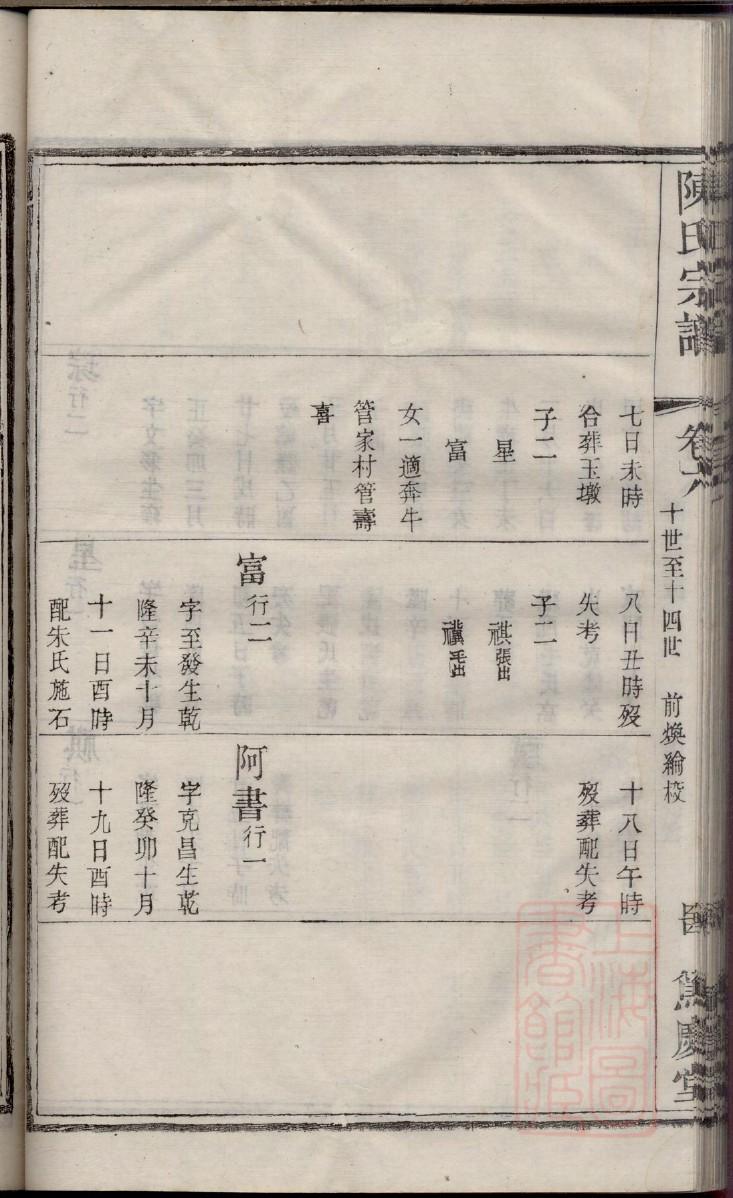 陳氏宗譜
卷六
十世至十四世 前煥綸校
篤慶堂
七日未時
合葬玉墩
子二
星
富
女一適奔牛
管家村管壽
喜
八日丑時歿
失考
子二
祺張出
富行二
字至發生乾
隆辛未十月
十一日酉時
配朱氏施石
十八日午時
歿葬配失考
阿書行一
字克昌生乾
隆癸卯十月
十九日酉時
歿葬配失考
上海圖書館藏